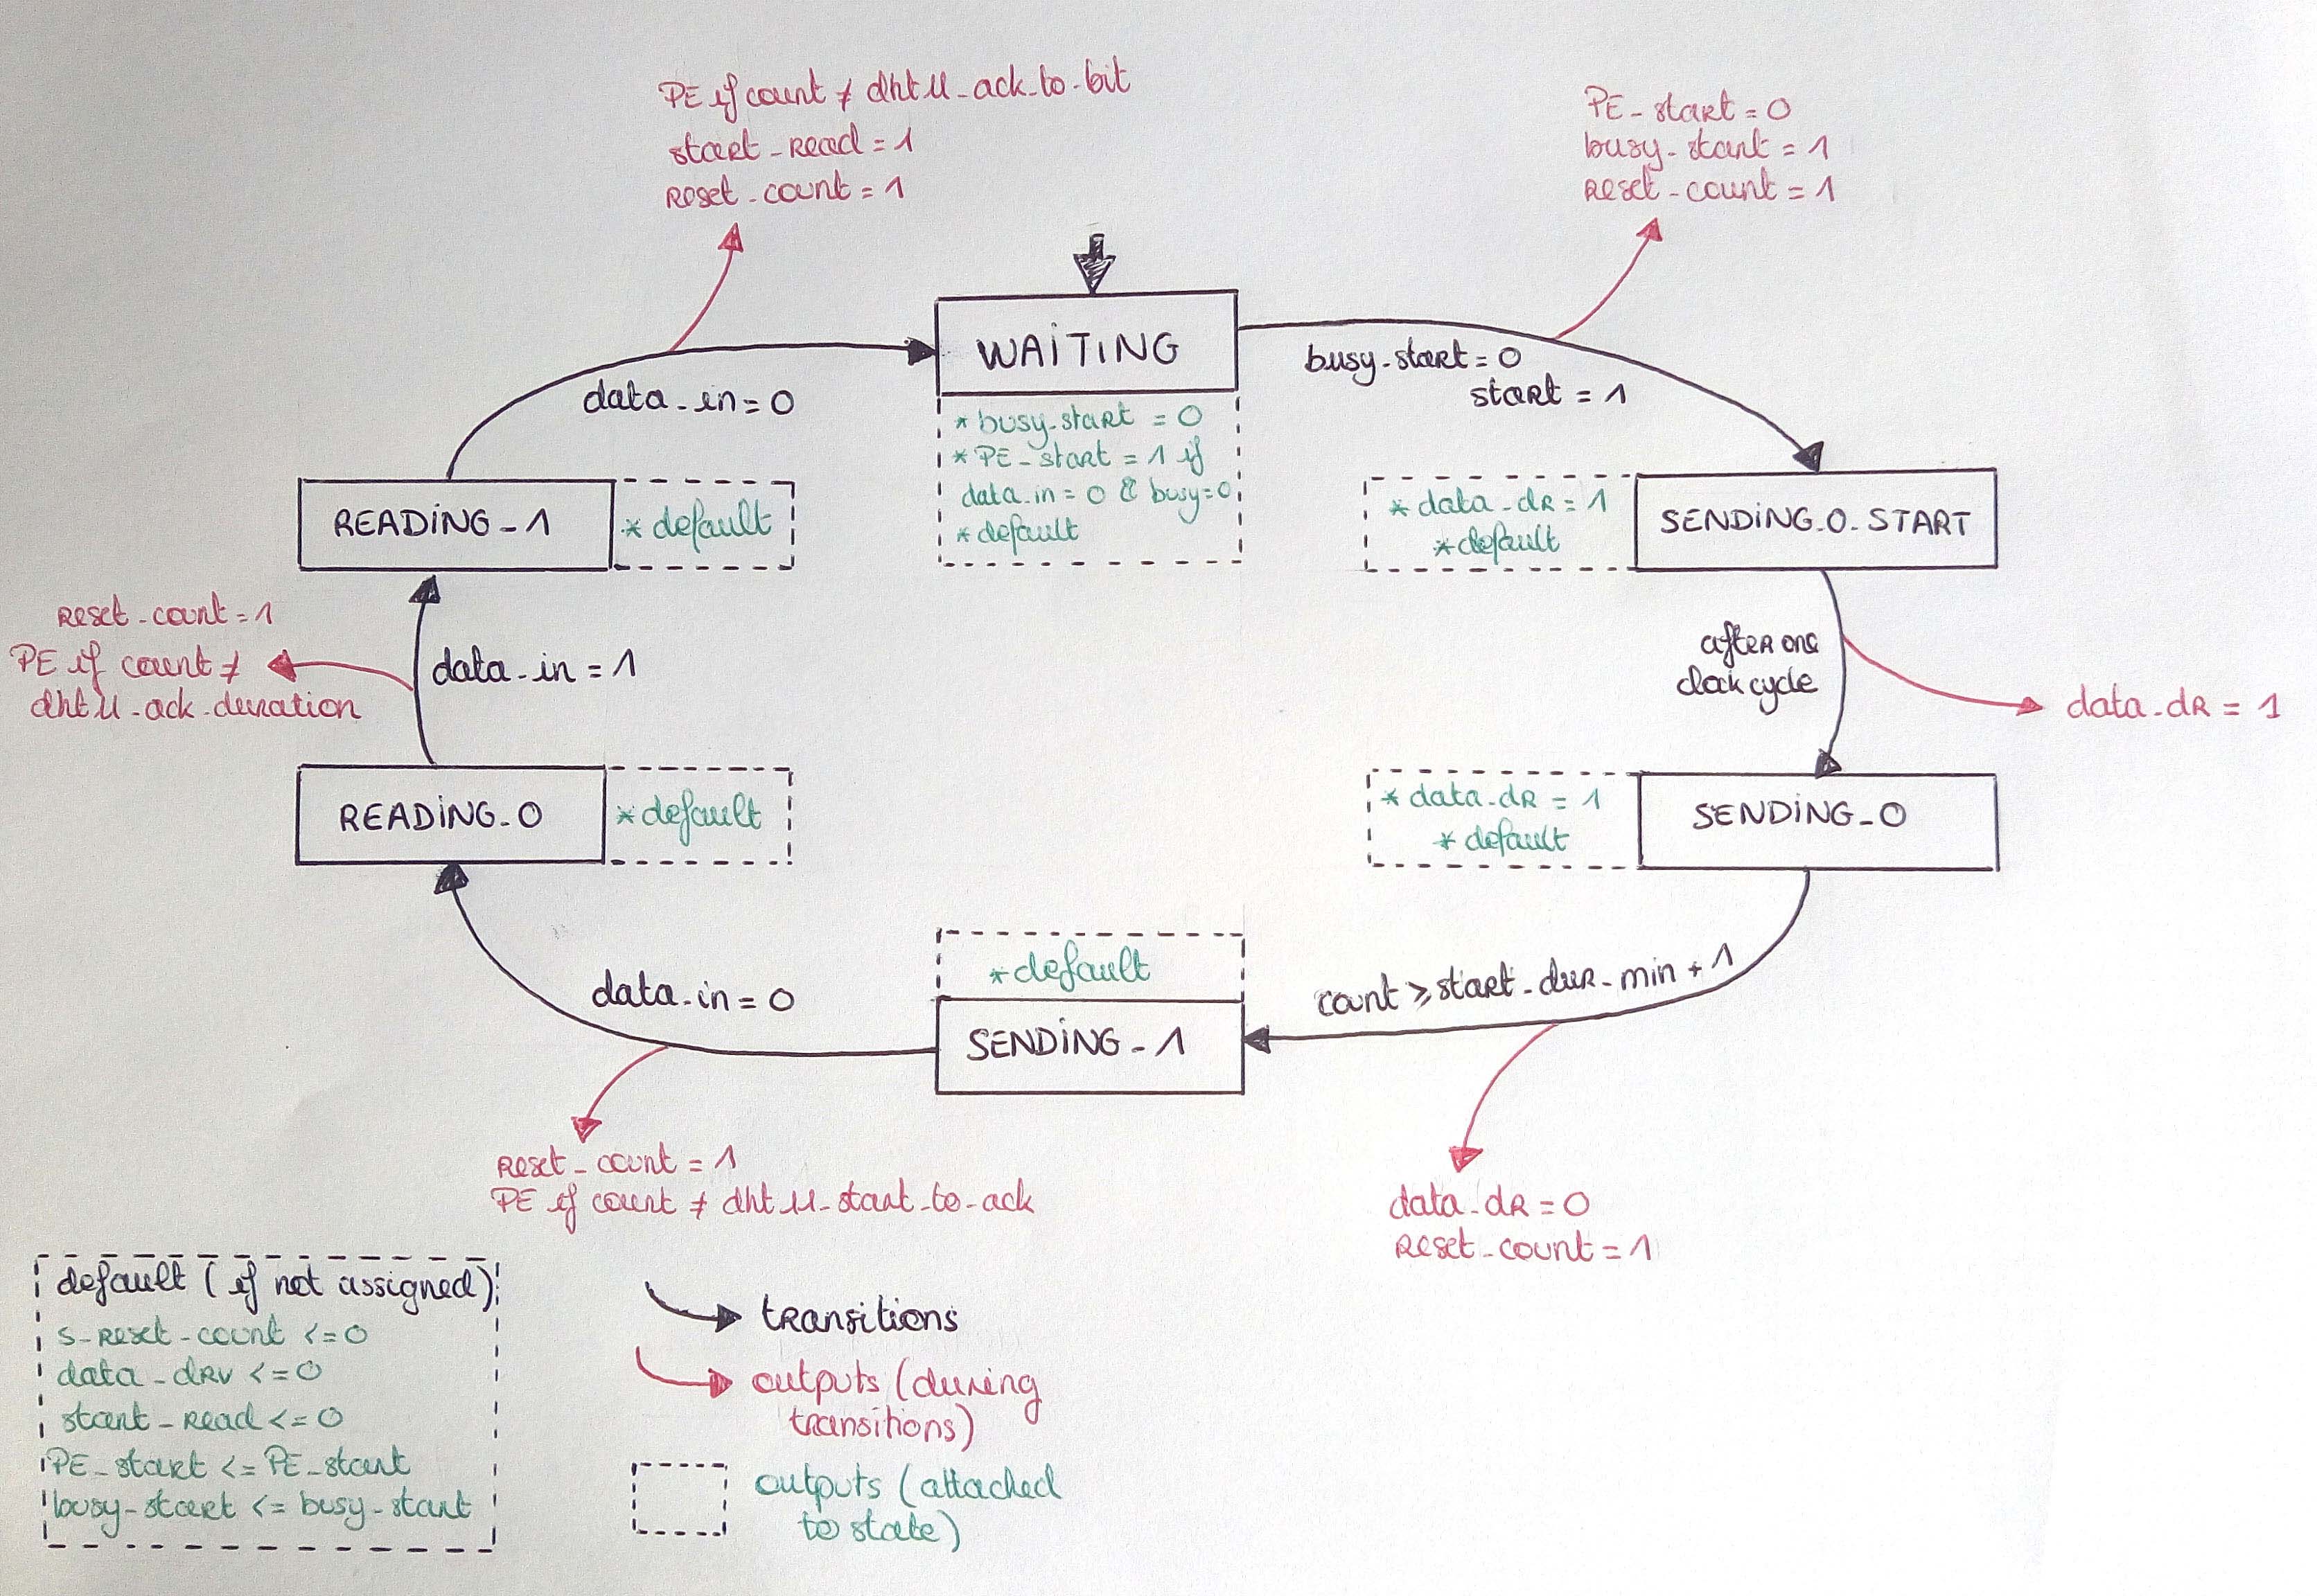 PE if count ≠ dht11_ack_to_bit
start_read = 1
reset_count = 1
PE_start = 0
busy_start = 1
reset_count = 1
WAITING
busy_start = 0
start = 1
data_in = 0
* busy_start = 0
* PE_start = 1 if
data_in = 0 & busy=0
* default
READING_1
* default
* data_dr = 1
* default
SENDING_0_START
reset_count = 1
PE if count ≠
dht11_ack_duration
data_in = 1
after one
clock cycle
data_dr = 1
READING_0
* default
* data_dr = 1
* default
SENDING_0
* default
SENDING_1
data_in = 0
count ≥ start_dur_min + 1
reset_count = 1
PE if count ≠ dht11_start_to_ack
data_dr = 0
reset_count = 1
default (if not assigned)
s_reset_count <= 0
data_drv <= 0
start_read <= 0
PE_start <= PE_start
busy_start <= busy_start
transitions
outputs (during
transitions)
outputs (attached
to state)